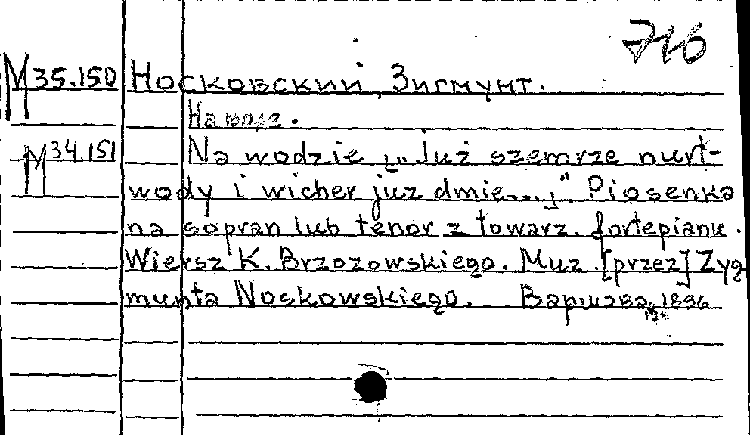 716
М 35.150 Носковский, Зигмунт.
На воде.
М 34.151 Na wodzie „Już szemrze nurt-
wody i wicher już dmie...". Piosenka
na sopran lub tenor z towarz. fortepianu.
Wiersz K. Brzozowskiego. Muz. [przez] Zyg
munta Noskowskiego. Варшава, 1896